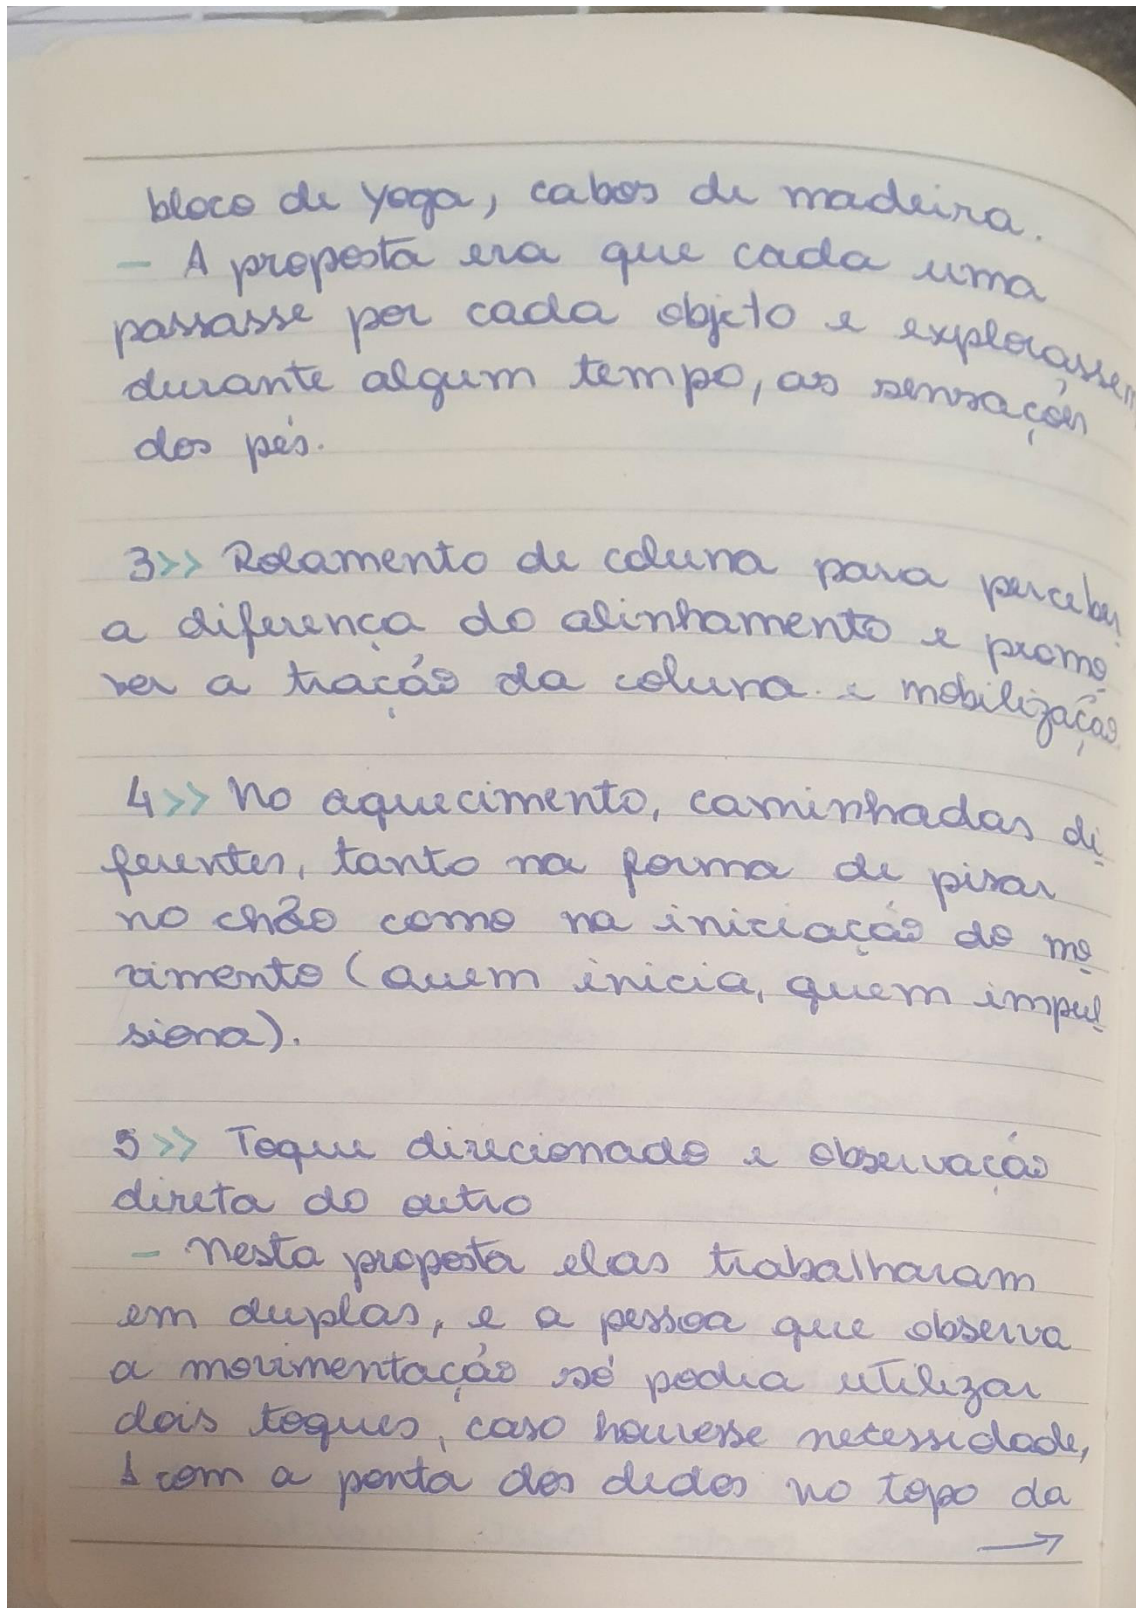 bloco de yoga, cabos de madeira.
- A proposta era que cada uma
passasse por cada objeto e explorassem
durante algum tempo, as sensações
dos pés.
3>> Rolamento de coluna para perceber
a diferença do alinhamento e promo
ver a tração da coluna e mobilização.
4>> No aquecimento, caminhadas di
ferentes, tanto na forma de pisar
no chão como na iniciação do mo
vimento (quem inicia, quem impul
siona).
5>> Toque direcionado e observação
direta do outro
- Nesta proposta elas trabalharam
em duplas, e a pessoa que observa
a movimentação só podia utilizar
dois toques, caso houvesse necessidade,
1 com a ponta dos dedos no topo da
→